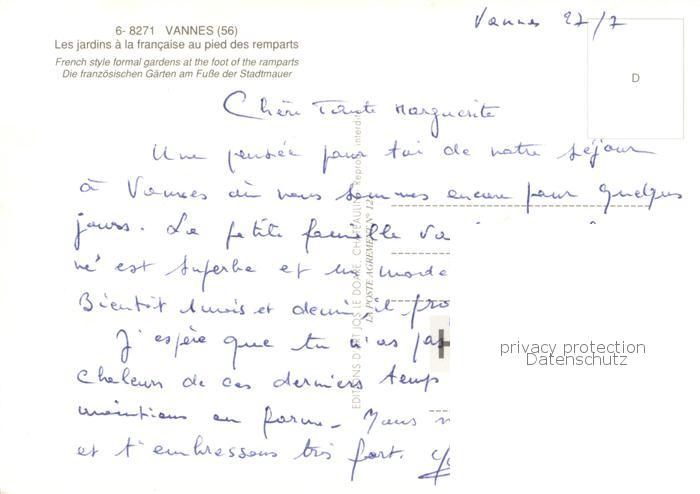 Vannes 27/7
6- 8271 VANNES (56)
Les jardins à la française au pied des remparts
French style formal gardens at the foot of the ramparts
Die französischen Gärten am Fuße der Stadtmauer
D
Chère Tante Marguerite
Une pensée pour toi de notre séjour
à Vannes où nous sommes encore pour quelques
jours. La petite famille va
né est superbe et
Bientôt 2 mois et demi, il pro
J'espère que tu n'as pas
chaleur de ces derniers temps
maintiens en forme. Nous
et t'embrassons très fort.
EDITIONS D'ART JOS LE DOARE, CHATEAULIN Reprod. interdite
LA POSTE AGREMENT N° 12
privacy protection
Datenschutz